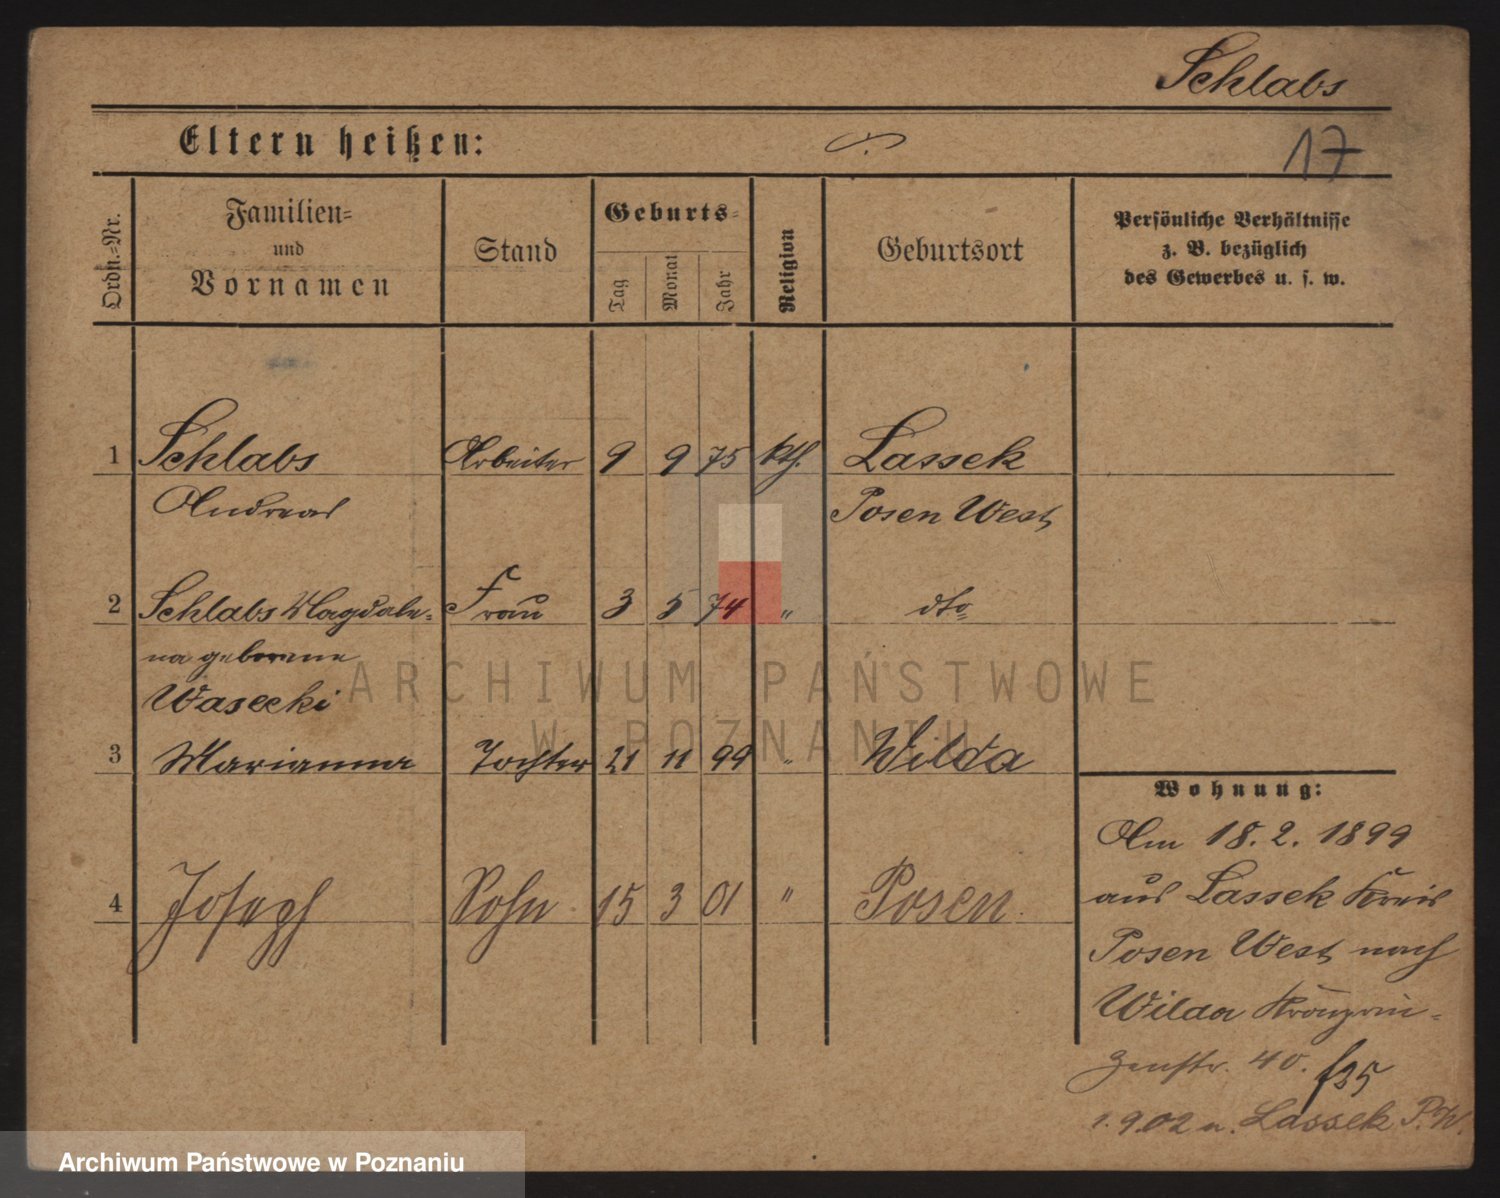 Schlabs
Eltern heißen:
17
Ordn.=Nr.
Familien=
und
Vornamen
Stand
Geburts=
Tag
Monat
Jahr
Religion
Geburtsort
Persönliche Verhältnisse
z. B. bezüglich
des Gewerbes u. s. w.
1 Schlabs Arbeiter 9 9 75 kth. Lassek
Andreas Posen West
2 Schlabs Magdale= Frau 3 5 74 " dto
na geborene
Wasecki
3 Marianna Tochter 21 11 99 " Wilda
Wohnung:
Am 18. 2. 1899
4 Joseph Sohn 15 3 01 " Posen
aus Lassek Kreis
Posen West nach
Wilda Kronprin=
zenstr. 40.
1.9.02 n. Lassek P.W.
ARCHIWUM PAŃSTWOWE
W POZNANIU
Archiwum Państwowe w Poznaniu